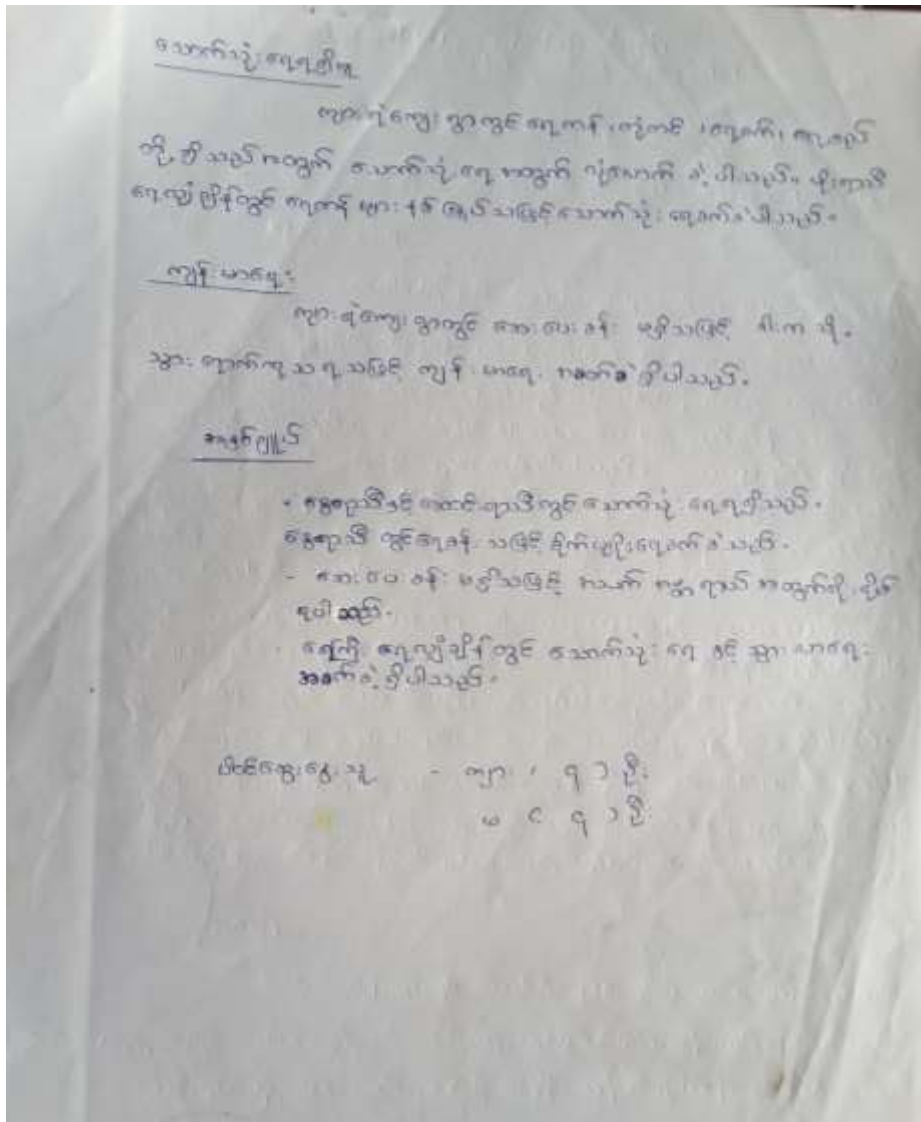 သောက်သုံးရေရရှိမှု
ကျားရဲကျေးရွာတွင် ရေကန်၊ တုံကင်၊ ရေစက်၊ ရေစည်
တို့ရှိသည့်အတွက် သောက်သုံးရေအတွက် လုံလောက်ခဲ့ပါသည်။ မိုးရာသီ
ရေလျှံချိန်တွင် ရေကန်များ နစ်မြုပ်သဖြင့် သောက်သုံးရေခက်ခဲပါသည်။
ကျန်းမာရေး
ကျားရဲကျေးရွာတွင် ဆေးပေးခန်း မရှိသဖြင့် သို့
သွားရောက်ကုသရသဖြင့် ကျန်းမာရေး အခက်အခဲရှိပါသည်။
အနှစ်ချုပ်
- နွေရာသီနှင့် ရာသီတွင် သောက်သုံးရေရရှိသည်။
နွေရာသီတွင်ရေခန်းသဖြင့် စိုက်ပျိုးရေခက်ခဲသည်။
- ဆေးပေးခန်းမရှိသဖြင့် အသက်အန္တရာယ်အတွက်စိုးရိမ်
ရပါသည်။
- ရေကြီးရေလျှံချိန်တွင် သောက်သုံးရေနှင့် သွားလာရေး
အခက်ခဲရှိပါသည်။
ပါဝင်ဆွေးနွေးသူ - ကျား ၊ ၅ ) ဦး
မ ( ၅ ) ဦး